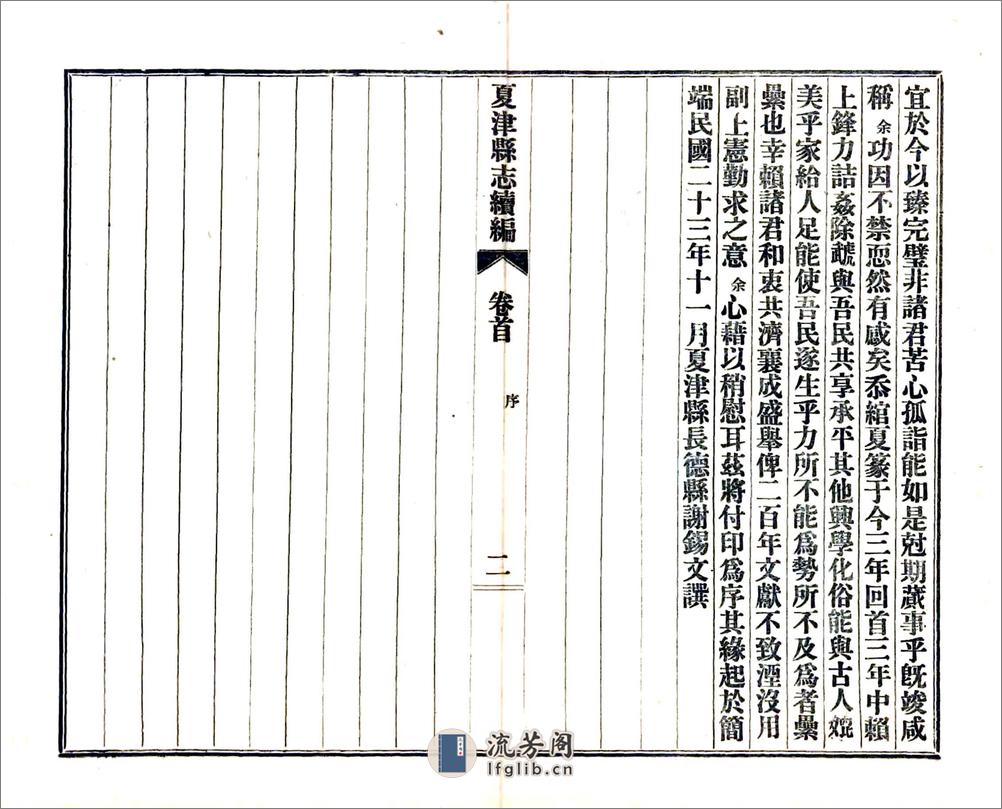 宜於今以臻完璧非諸君苦心孤詣能如是尅期蕆事乎旣竣咸
稱余功因不禁恧然有感矣忝綰夏篆于今三年回首三年中賴
上鋒力詰姦除虣與吾民共享承平其他興學化俗能與古人媲
美乎家給人足能使吾民遂生乎力所不能爲勢所不及爲者纍
纍也幸賴諸君和衷共濟襄成盛舉俾二百年文獻不致湮沒用
副上憲勤求之意余心藉以稍慰耳茲將付印爲序其緣起於簡
端民國二十三年十一月夏津縣長德縣謝錫文譔
夏津縣志續編
卷首
序
二
流芳阁
lfglib.cn